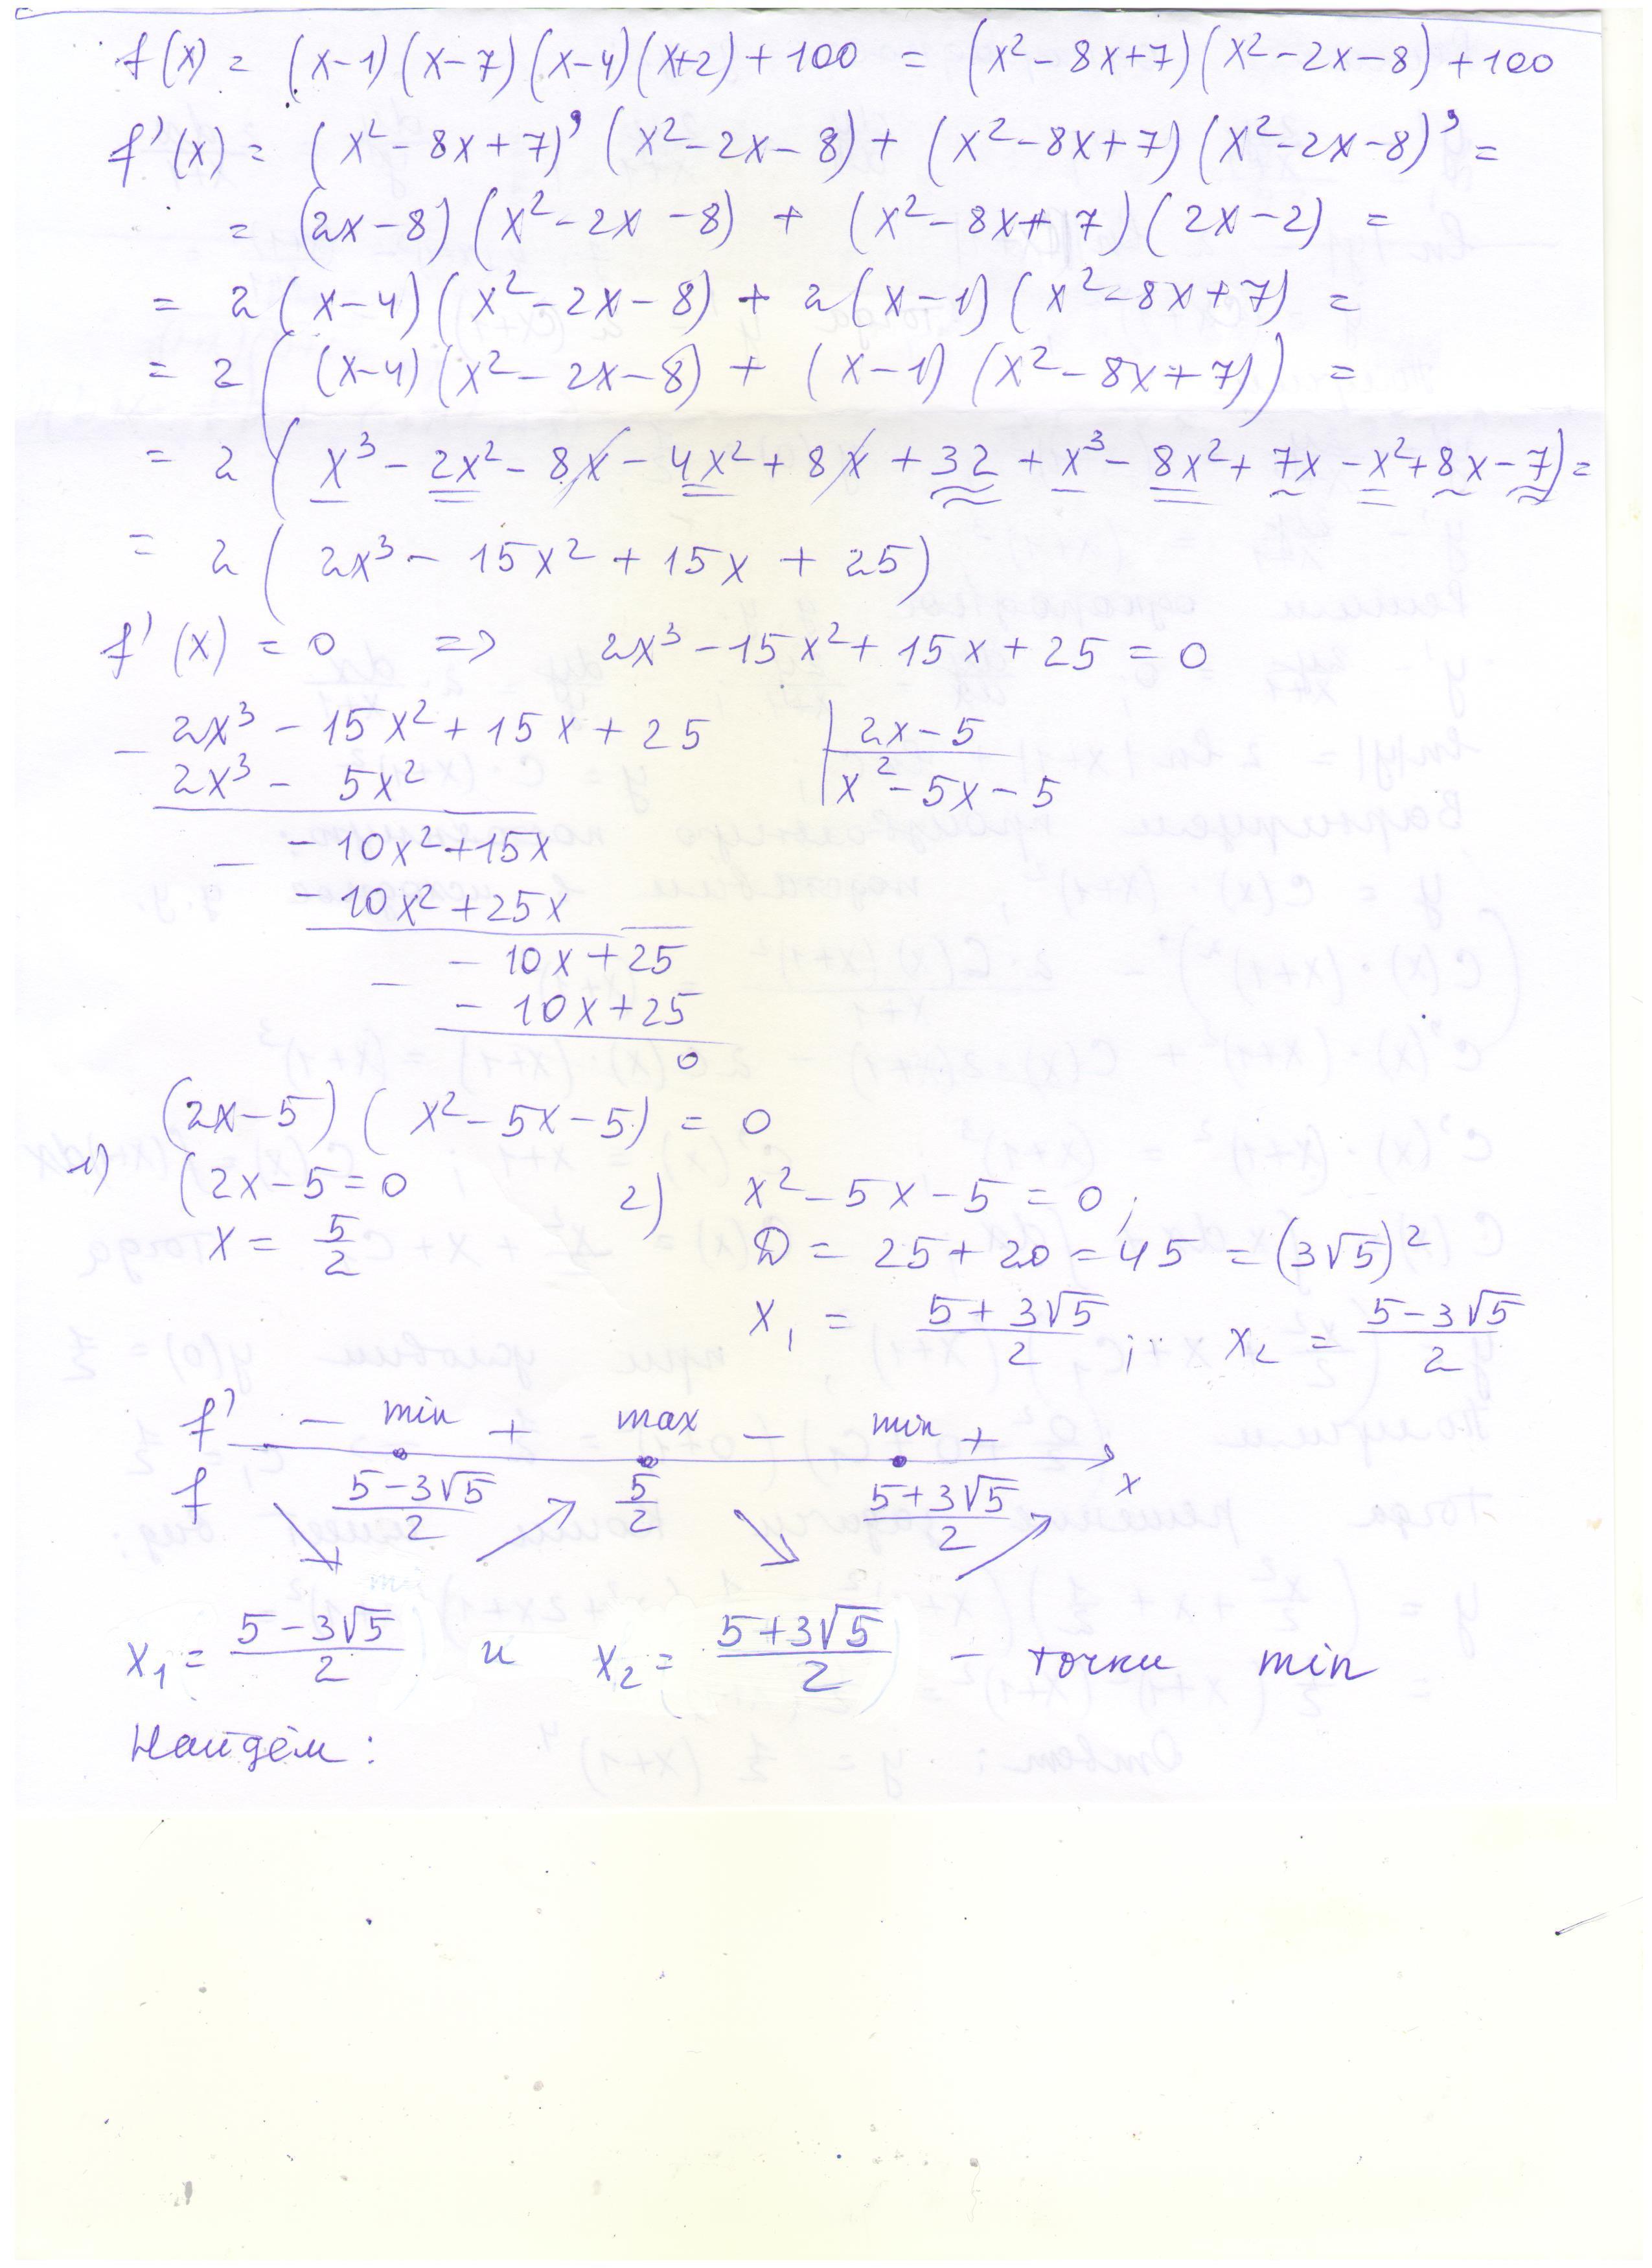 f(x) = (x-1)(x-7)(x-4)(x+2)+100 = (x²-8x+7)(x²-2x-8)+100
f'(x) = (x²-8x+7)'(x²-2x-8)+(x²-8x+7)(x²-2x-8)' =
= (2x-8)(x²-2x-8) + (x²-8x+7)(2x-2) =
= 2(x-4)(x²-2x-8) + 2(x-1)(x²-8x+7) =
= 2((x-4)(x²-2x-8) + (x-1)(x²-8x+7)) =
= 2(x³-2x²-8x-4x²+8x+32+x³-8x²+7x-x²+8x-7) =
= 2(2x³-15x²+15x+25)
f'(x) = 0 => 2x³-15x²+15x+25 = 0
- 2x³-15x²+15x+25 | 2x-5
2x³-5x² | x²-5x-5
- -10x²+15x
-10x²+25x
- -10x+25
-10x+25
0
(2x-5)(x²-5x-5) = 0
1) (2x-5=0 2) x²-5x-5=0;
x = 5/2 D = 25+20=45 = (3√5)²
x₁ = (5+3√5)/2 ; x₂ = (5-3√5)/2
f' - min + max - min +
f (5-3√5)/2 5/2 (5+3√5)/2 x
x₁ = (5-3√5)/2 и x₂ = (5+3√5)/2 - точки min
Найдём: